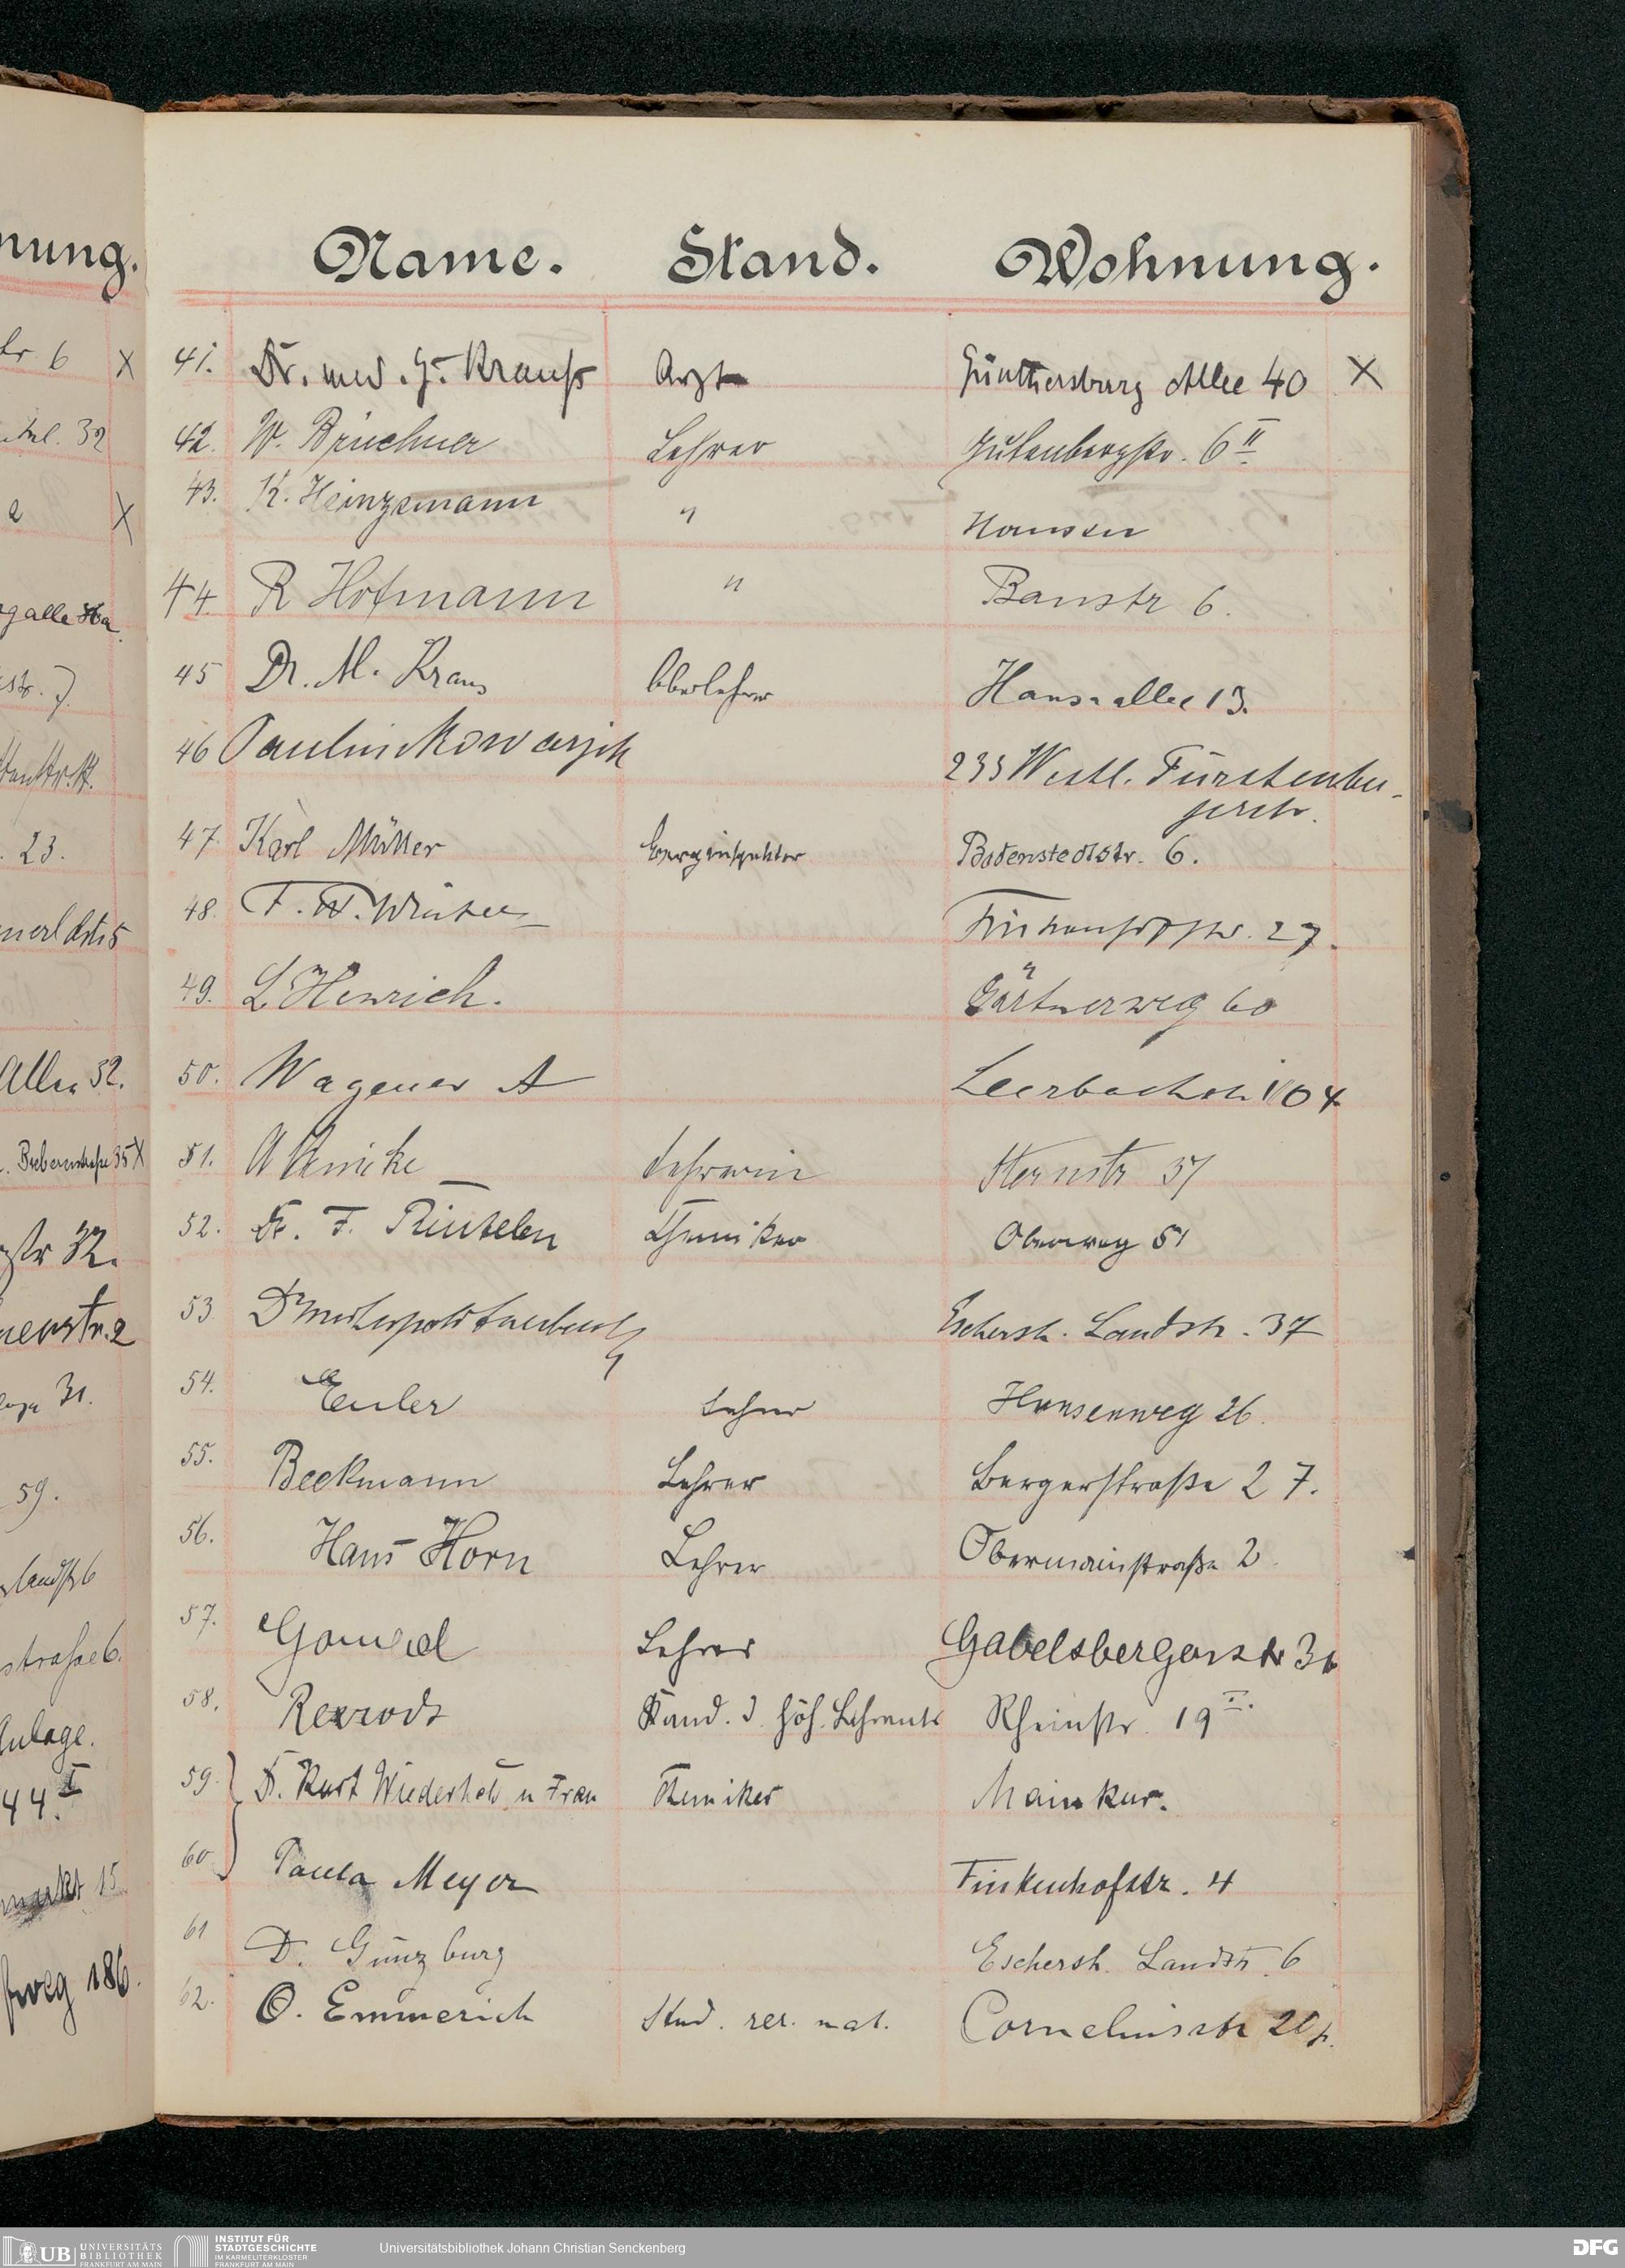 nung.
tr 6 X
32
a X
galle
str. 7
23.
Allee 32.
35 X
str 32.
nenstr. 2
31.
59.
landstr 6
strasse 6.
Anlage.
44. I
markt 15
weg 186.
Name. Stand. Wohnung.
41. Dr. med. G. Krauß Arzt Günthersburg Allee 40 X
42. W. Brüchner Lehrer Gutenbergstr. 6 II
43. K. Heinzemann " Hausen
44. R Hofmann " Baustr 6.
45 Dr. M. Kraus Oberlehrer Hansaallee 13.
46 233 Westl. Fürstenber-
gerstr.
47. Karl Müller Bodenstedtstr. 6.
48. F. W. Winter Finkenhofstr. 27.
49. L Henrich. Gärtnerweg 60
50. Wagener A Leerbachstr 104
51. Lehrerin Sternstr 37
52. Dr. F. Rintelen Chemiker Oberweg 51
53 Eschersh. Landstr. 37
54. Euler Lehrer Hansenweg 26.
55. Beekmann Lehrer Bergerstraße 27.
56. Hans Horn Lehrer Obermainstraße 2.
57. Lehrer Gabelsbergerstr
58. Rexrodt Kand. d. höh. Lehramts Rheinstr. 19 II.
59. Dr. Kurt Wiederhold u Frau Chemiker Mainkur.
60 Paula Meyer Finkenhofstr. 4
61 Dr. Günzburg Eschersh. Landstr. 6
62. O. Emmerich Stud. rer. nat. Corneliusstr
UB UNIVERSITÄTS
BIBLIOTHEK
FRANKFURT AM MAIN
INSTITUT FÜR
STADTGESCHICHTE
IM KARMELITERKLOSTER
FRANKFURT AM MAIN
Universitätsbibliothek Johann Christian Senckenberg
DFG